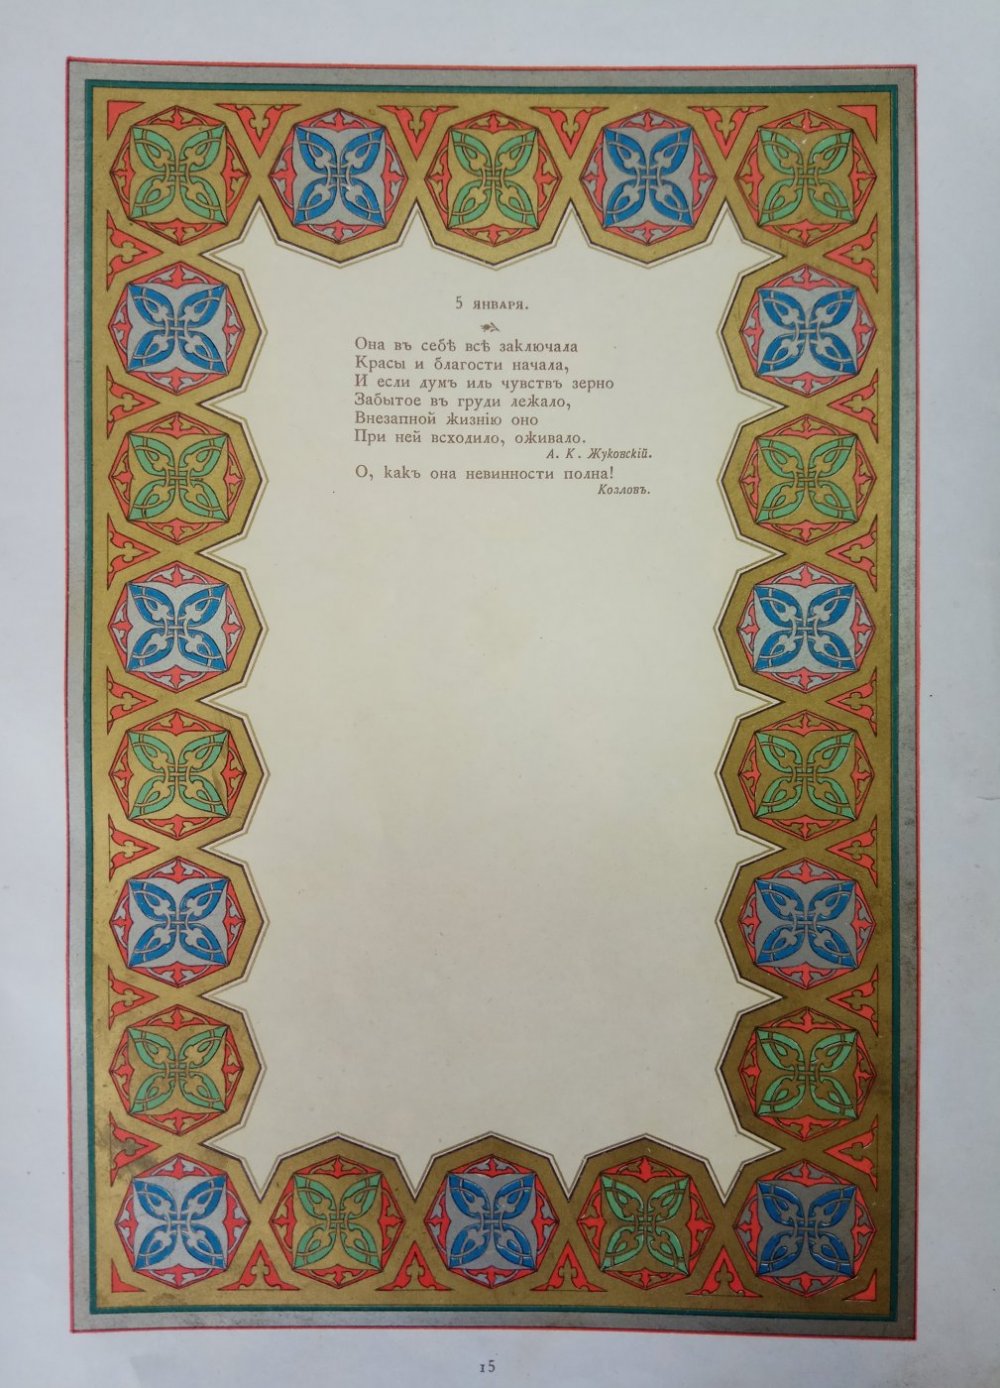 5 ЯНВАРЯ.
Она въ себѣ всѣ заключала
Красы и благости начала,
И если думъ иль чувствъ зерно
Забытое въ груди лежало,
Внезапной жизнію оно
При ней всходило, оживало.
А. К. Жуковскій.
О, какъ она невинности полна!
Козловъ.
15